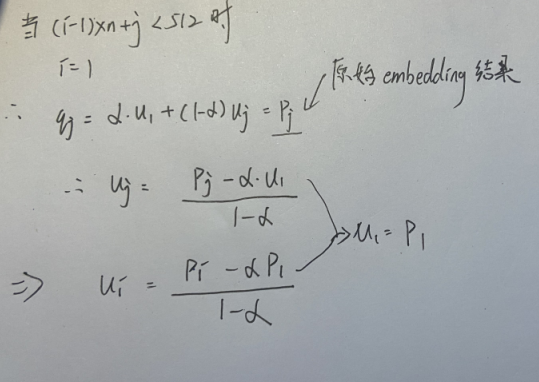 当 (i-1)×n+j <512 时
i=1
∴ qj = α·u1+(1-α)uj = Pj ← 原始 embedding 结果
∴ uj = (Pj-α·u1)/(1-α)
⇒ u1 = P1
⇒ ui = (Pi-αP1)/(1-α)